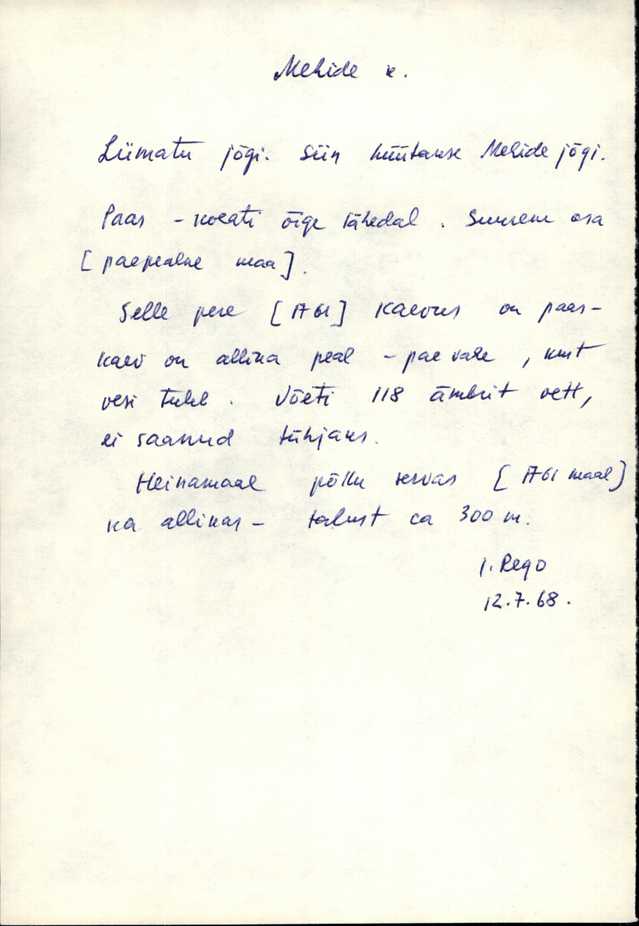 Mehide k.
Liimatu jõgi. Siin hüütakse Mehide jõgi.
Paas – kohati õige lähedal. Suurem osa
[paepealne maa].
Selle pere [1761] kaevus on paas –
kaev on allika peal – pae vahe, kust
vesi tuleb. Võeti 118 ämbrit vett,
ei saanud tühjaks.
Heinamaal põllu servas [1761 maal]
ka allikas – talust ca 300 m.
I. Rego
12.7.68.